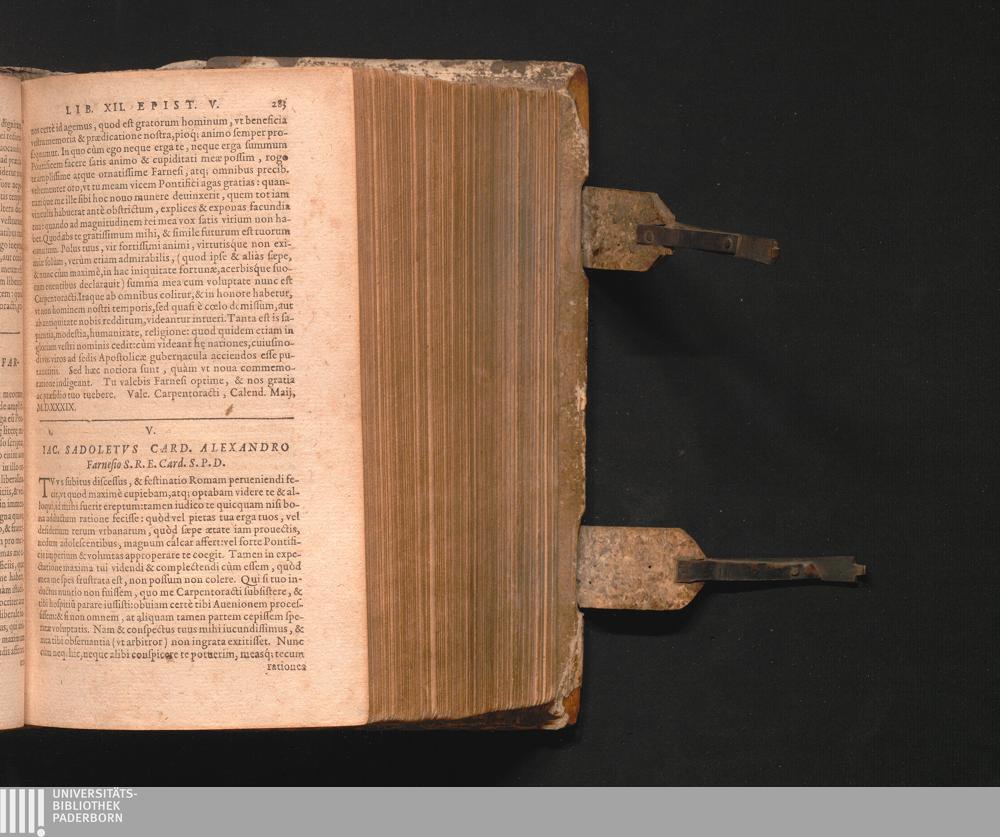 LIB. XII. EPIST. V. 283
nos certè id agemus, quod est gratorum hominum, vt beneficia
vestra memoria & prædicatione nostra, pioq; animo semper pro-
sequamur. In quo cùm ego neque erga te, neque erga summum
Pontificem facere satis animo & cupiditati meæ possim, rogo
te amplissime atque ornatissime Farnesi, atq; omnibus precib.
vehementer oro, vt tu meam vicem Pontifici agas gratias: quan-
tumque me ille sibi hoc nouo munere deuinxerit, quem tot iam
vinculis habuerat antè obstrictum, explices & exponas facundia
tua: quando ad magnitudinem rei mea vox satis virium non ha-
bet. Quod abs te gratissimum mihi, & simile futurum est tuorum
Polus tuus, vir fortissimi animi, virtutisque non exi-
miæ solùm, verùm etiam admirabilis, (quod ipse & aliàs sæpe,
& nunc cùm maximè, in hac iniquitate fortunæ, acerbisque suo-
rum euentibus declarauit) summa mea cum voluptate nunc est
Carpentoracti. Itaque ab omnibus colitur, & in honore habetur,
vt non hominem nostri temporis, sed quasi è cœlo demissum, aut
ab antiquitate nobis redditum, videantur intueri. Tanta est is sa-
pientia, modestia, humanitate, religione: quod quidem etiam in
gloriam vestri nominis cedit: cùm videant hę nationes, cuiusmo-
di vos viros ad sedis Apostolicæ gubernacula acciendos esse pu-
taueritis. Sed hæc notiora sunt, quàm vt noua commemo-
ratione indigeant. Tu valebis Farnesi optime, & nos gratia
ac præsidio tuo tuebere. Vale. Carpentoracti, Calend. Maij,
M.D.XXXIX.
V.
IAC. SADOLETVS CARD. ALEXANDRO
Farnesio S. R. E. Card. S. P. D.
TVvs subitus discessus, & festinatio Romam perueniendi fe-
cit, vt quod maximè cupiebam, atq; optabam videre te & al-
loqui, id mihi fuerit ereptum: tamen iudico te quicquam nisi bo-
na adductum ratione fecisse: quòd vel pietas tua erga tuos, vel
desiderium rerum vrbanarum, quòd sæpe ætate iam prouectis,
nedum adolescentibus, magnum calcar affert: vel forte Pontifi-
cis imperium & voluntas approperare te coegit. Tamen in expe-
ctatione maxima tui videndi & complectendi cùm essem, quòd
mea me spes frustrata est, non possum non colere. Qui si tuo in-
ductus nuntio non fuissem, quo me Carpentoracti subsistere, &
tibi hospitiũ parare iussisti: obuiam certè tibi Auenionem proces-
sissem: & si non omnem, at aliquam tamen partem cepissem spe-
ratæ voluptatis. Nam & conspectus tuus mihi iucundissimus, &
mea tibi obseruantia (vt arbitror) non ingrata extitisset. Nunc
cùm neq; hîc, neque alibi conspicere te potuerim, measq; tecum
rationes
UNIVERSITÄTS-
BIBLIOTHEK
PADERBORN